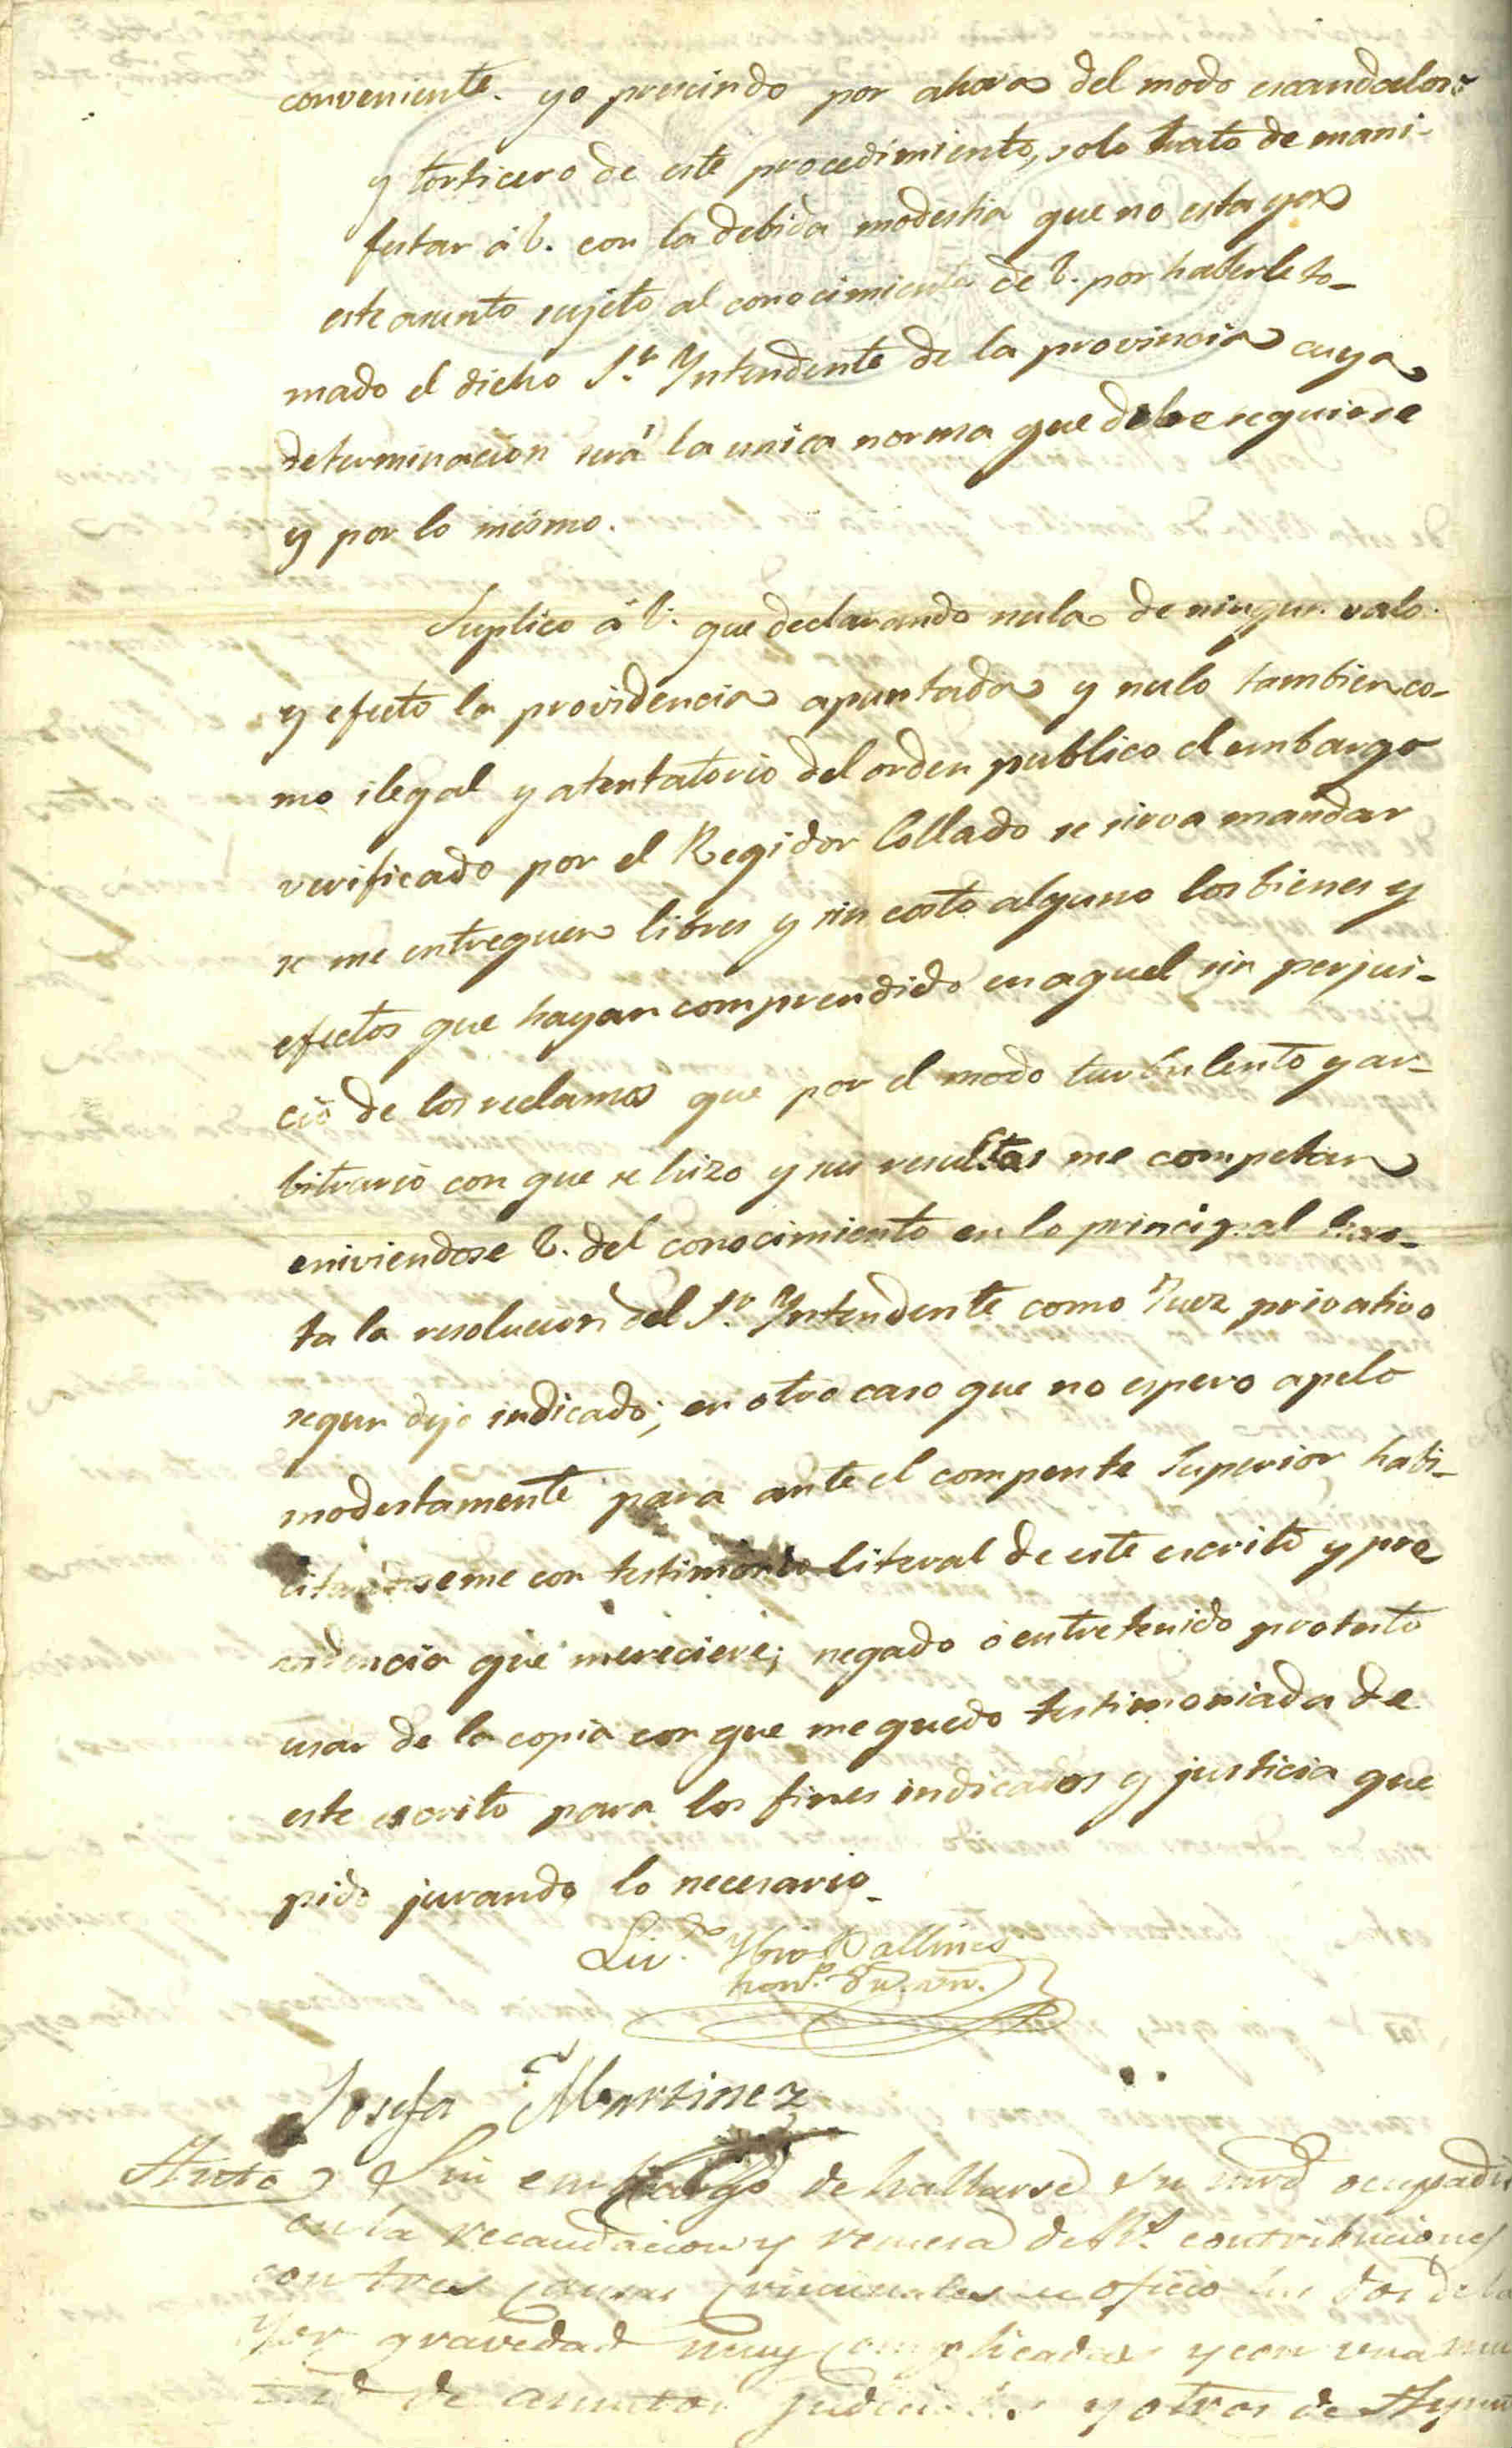 conveniente. yo prescindo por ahora del modo escandaloso
y torticero de este procedimiento, solo trato de mani-
festar á V. con la debida modestia que no esta ya
este asunto sujeto al conocimiento de V. por haberle to-
mado el dicho S.r Yntendente de la provincia cuya
determinacion será la unica norma que debe seguirse
y por lo mismo.
Suplico á V. que declarando nula de ningun valor
y efecto la providencia apuntada y nulo tambien co-
mo ilegal y atentatorio del orden publico el embargo
verificado por el Regidor Collado se sirva mandar
se me entreguen libres y sin costo alguno los bienes y
efectos que hayan comprendido en aquel sin perjui-
cio de los reclamos que por el modo turbulento y ar-
bitrario con que se hizo y sus resultas me competan
eniviendose V. del conocimiento en lo principal has-
ta la resolucion del S.r Yntendente como Juez privativo
segun dejo indicado; en otro caso que no espero apelo
modestamente para ante el compente Superior habi-
litandoseme con testimonio literal de este escrito y pro
videncia que mereciere; negado ó entretenido protesto
usar de la copia con que me quedo testimoniada de
este escrito para los fines indicados y justicia que
pido jurando lo necesario
Lic.do
Josefa Martinez
Auto Sin embargo de hallarse su mrd ocupado
en la recaudacion y remesa de R.s contribuciones
con tres causas criminales de oficio las dos de la
Yor gravedad muy complicadas y con una mul
de asuntos judiciales y otros de Ayun